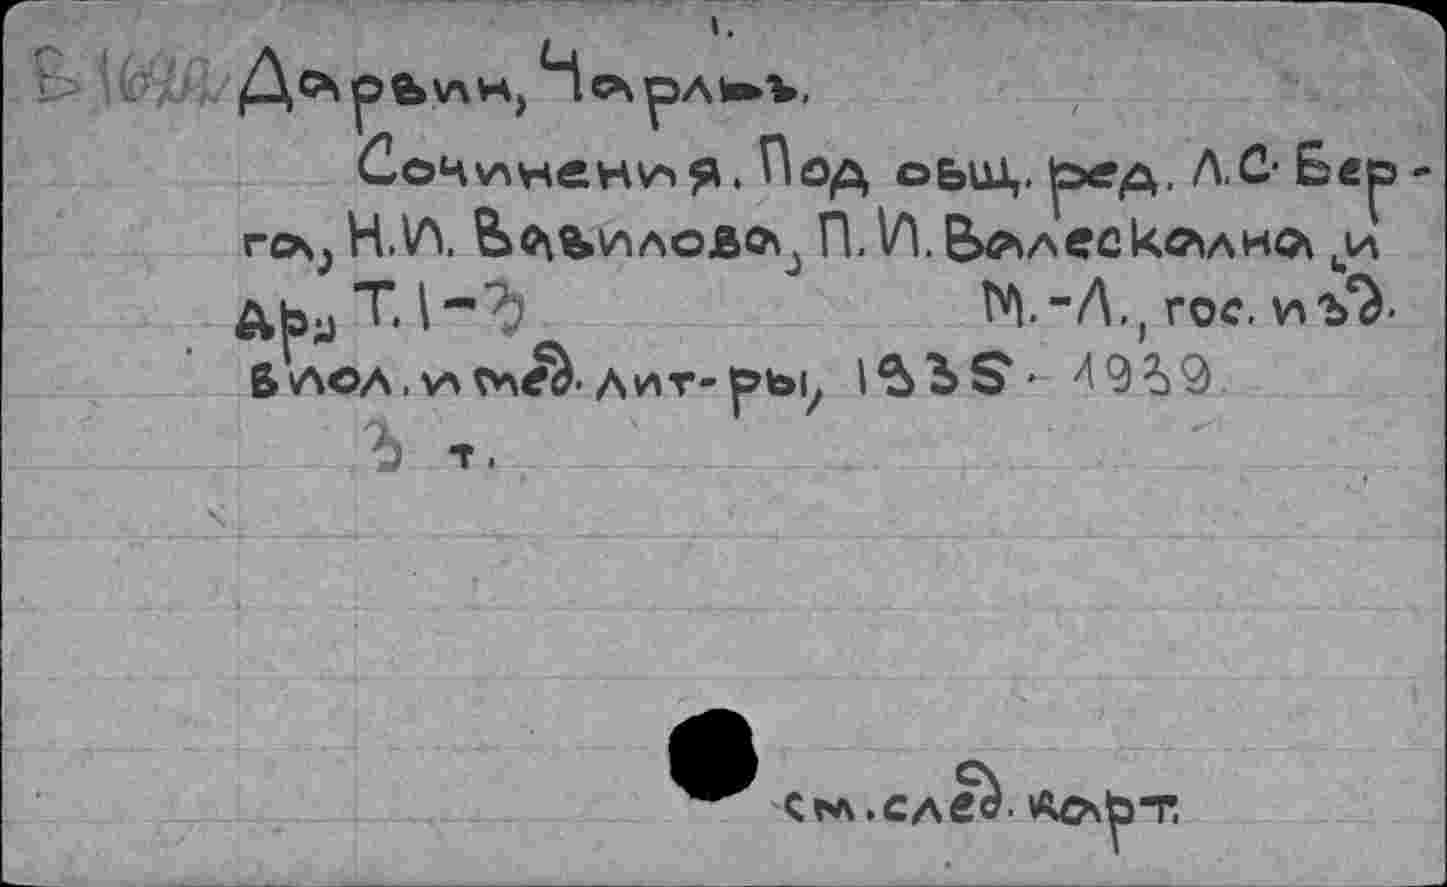 1.
Дарвин, Чарльз,
Сочинения. Под общ. ред. Л.С. Бер-
га, Н.И. Вавилова, П.И. Валескална и
др., Т. 1-3 М.-Л., гос. изд.
биол. и мед. лит-ры, 1935. 1939
3 т.
См. след. карт.